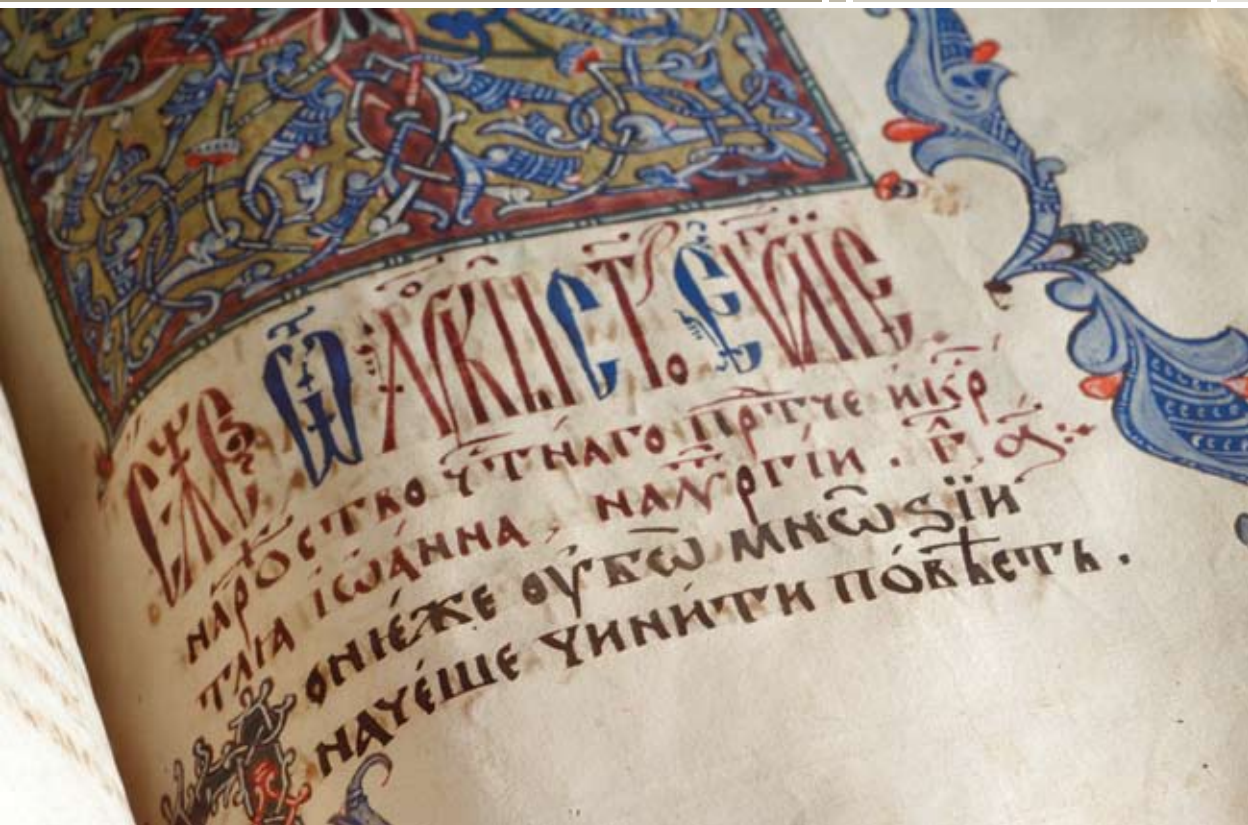 ЄЖЕ Ѿ ЛꙊКИ СТ҃О ЄѴ҃ЛЇЕ
на рⷪ҇ство чтⷭ҇наго прⷣ҇тче и крⷭ҇
тлꙗ іѡа́нна, на лѵⷮргіи. г҃ а҃
онѥ́же оу҆бѡ̑ мнѡ̑ѕїи
наче́ше чини́ти по́вѣсть.